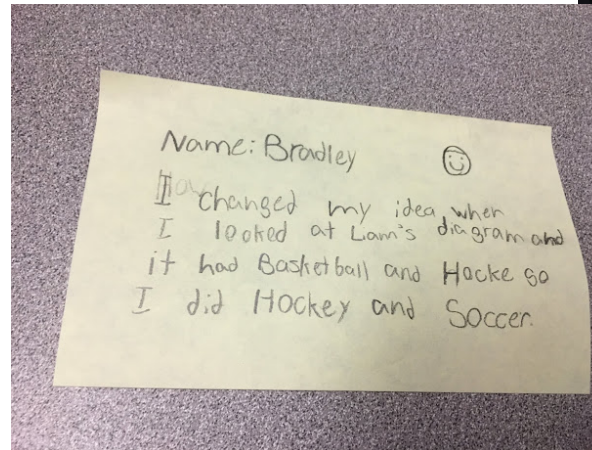 Name: Bradley
I changed my idea when
I looked at Liam's diagram and
it had Basketball and Hocke so
I did Hockey and Soccer.